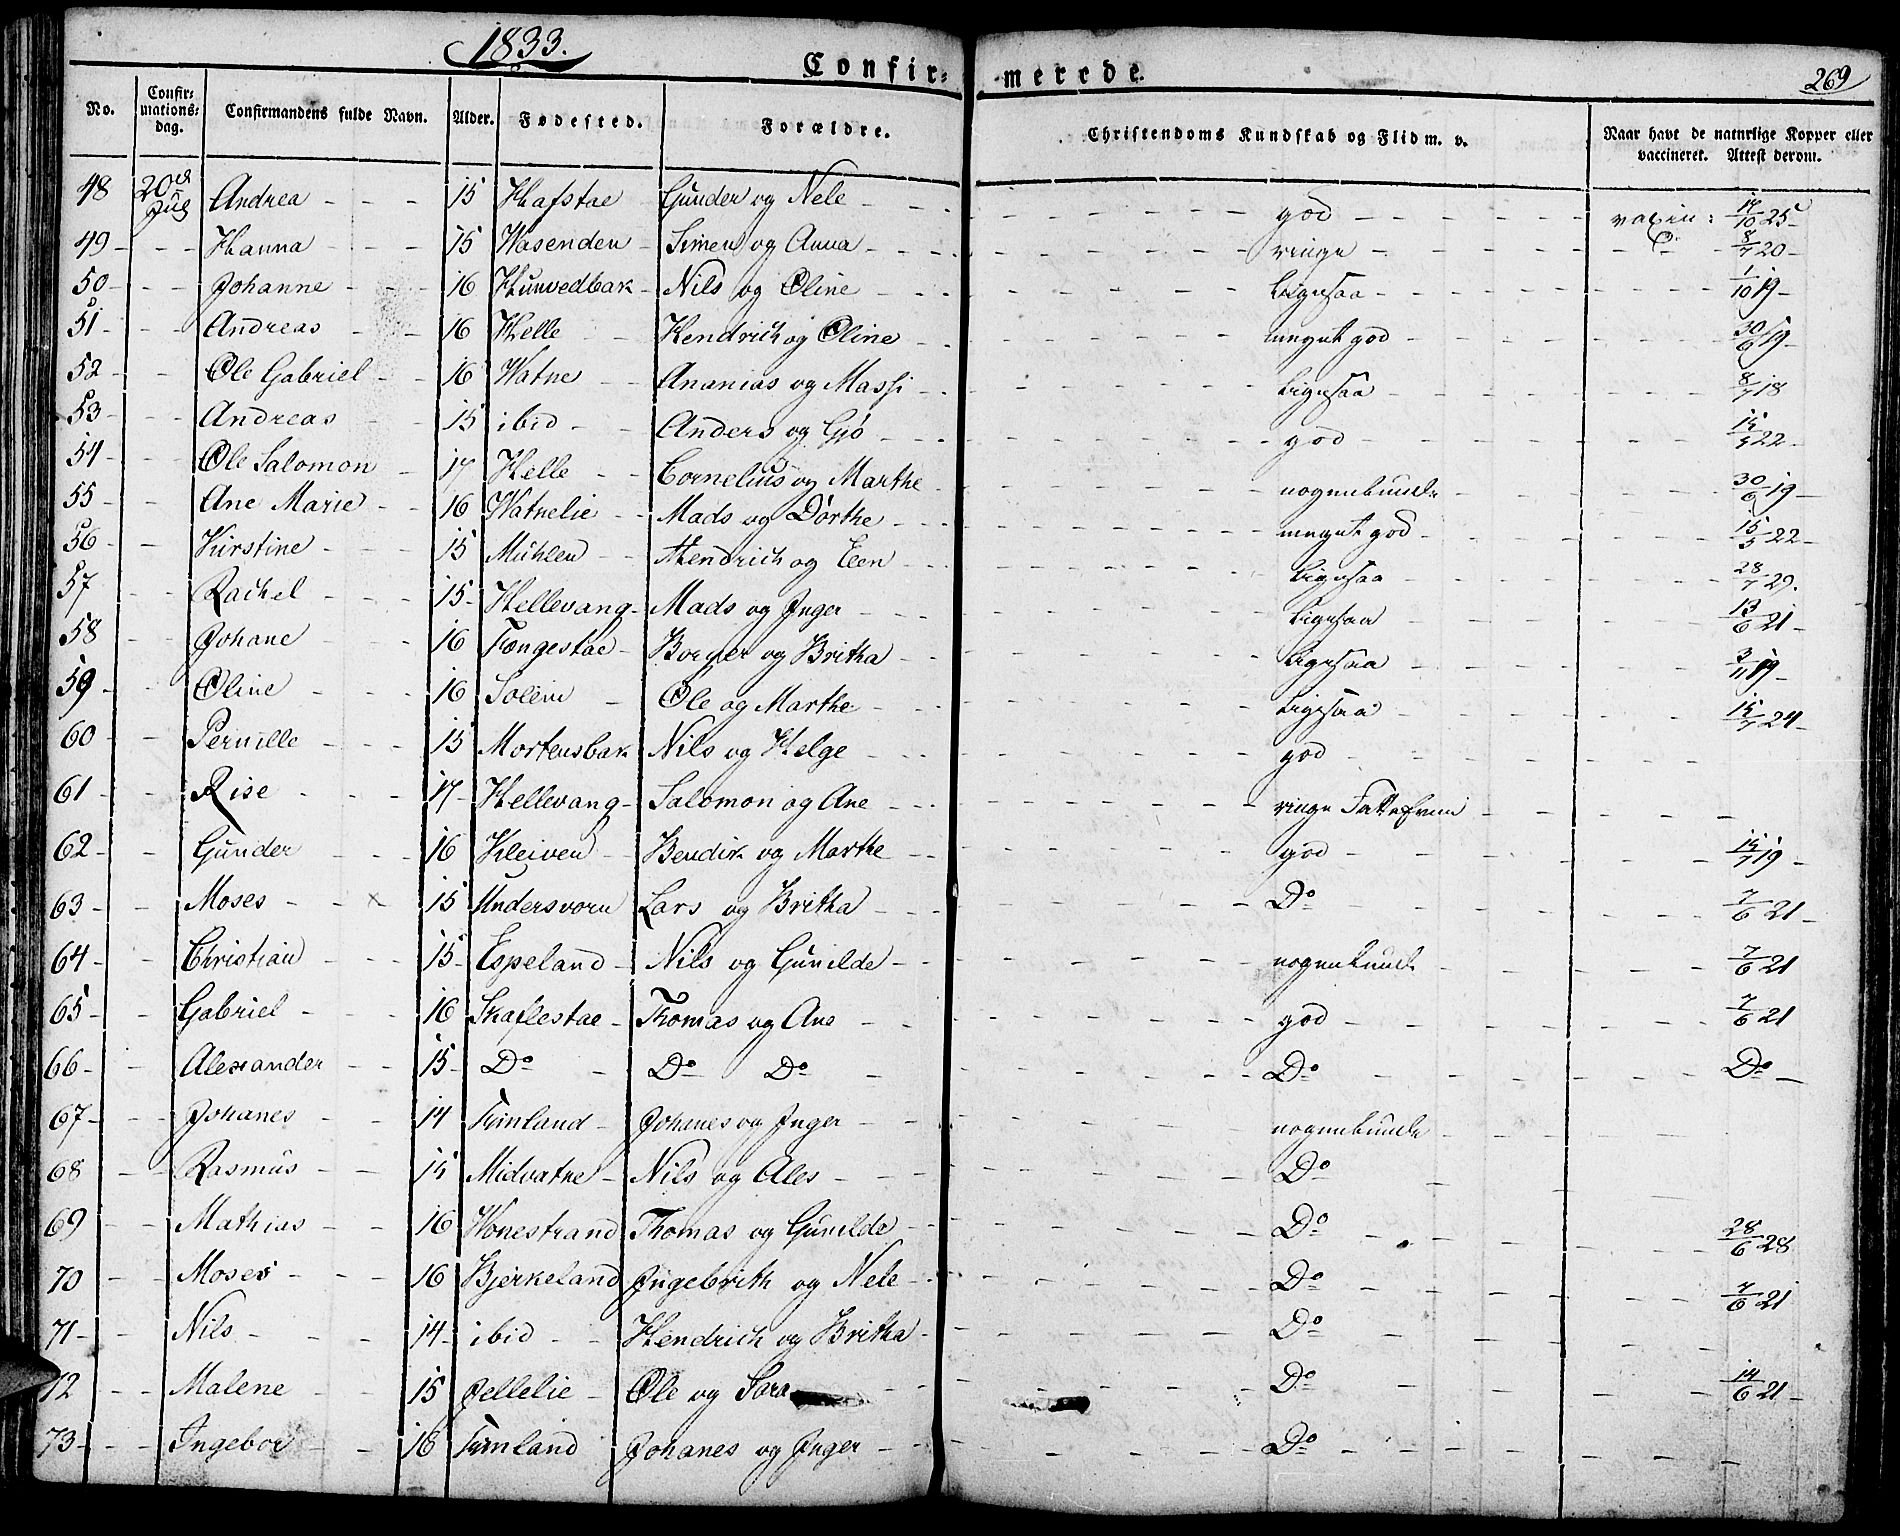 1833.
Confirmerede. 269
No. Confirmationsdag. Confirmandens fulde Navn. Alder. Fødested. Forældre. Christendoms Kundskab og Flid m. v. Naar havt de naturlige Kopper eller vaccineret. Attest derom.
48 20 Andrea 15 Hafstae Gunder og Nele god vaxin: 17/10 25
49 Hanna 15 Wasenden Simen og Anna ringe D° 8/7 20
50 Johanne 16 Hunvedbak Nils og Oline Ligesaa 1/10 19
51 Andreas 16 Helle Hendrich og Oline meget god 30/6 19
52 Ole Gabriel 16 Watne Ananias og Massi Ligesaa 8/7 18
53 Andreas 15 ibid Anders og Gjø god 22
54 Ole Salomon 17 Helle Cornelius og Marthe nogenlunde 30/6 19
55 Ane Marie 16 Watnelie Mads og Dørthe meget god 15/5 22
56 Kirstine 15 Mühlen Hendrich og Leen Ligesaa 28/7 29.
57 Rachel 15 Hellevang Mads og Inger Ligesaa 13/6 21
58 Johane 16 Tængestae Borger og Britha Ligesaa 3/11 19
59 Oline 16 Solem Ole og Marthe Ligesaa 15/7 24
60 Pernille 15 Mortensbak Nils og Helge god
61 Rise 17 Hellevang Salomon og Ane ringe
62 Gunder 16 Kleiven Bendik og Marthe god 19
63 Moses x 15 Undersvorn Lars og Britha D° 7/6 21
64 Christian 15 Espeland Nils og Gunilde nogenlunde 7/6 21
65 Gabriel 16 Skaflestae Thomas og Ane god 7/6 21
66 Alexander 15 D° D° D° D° D°
67 Johanes 14 Timland Johanes og Inger nogenlunde
68 Rasmus 15 Midvatne Nils og Ales D°
69 Mathias 16 Wonestrand Thomas og Gunilde D° 28/6 28
70 Moses 16 Bjerkeland Ingebrith og Nele D° 7/6 21
71 Nils 14 ibid Hendrich og Britha D°
72 Malene 15 Jellelie Ole og Sara D° 14/6 21
73 Ingebor 16 Timland Johanes og Inger D°